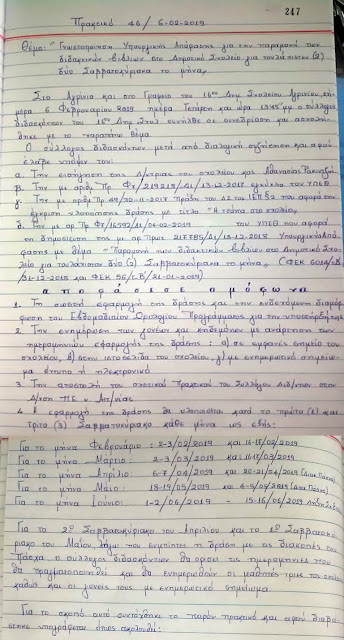 247
Πρακτικό 4δ / 6-02-2019
Θέμα: "Γνωστοποίηση Υπουργικής Απόφασης για την παραμονή των
διδακτικών βιβλίων στο Δημοτικό Σχολείο για τουλάχιστον (2)
δύο Σαββατοκύριακα το μήνα,
Στο Αγρίνιο και στο Γραφείο του 16ου Δημ. Σχολείου Αγρινίου, σή-
μερα 6 Φεβρουαρίου 2019 ημέρα Τετάρτη και ώρα 13:45' μμ ο σύλλογος
διδασκόντων του 16ου Δημ. Σχολ συνήλθε σε συνεδρίαση και ασχολή-
θηκε με το παραπάνω θέμα
Ο σύλλογος διδασκόντων μετά από διαλογική συζήτηση και αφού
έλαβε υπόψιν του:
α. Την εισήγηση της Δ/ντριας του σχολείου κας Αθανασίας
β. Την με αριθμ. Πρ. Φ7/219215/Δ1/13-12-2018 εγκύκλιο του ΥΠΕΘ
γ. Την με αριθμ. Πρ. 49/20-11-2017 Πράξη του ΔΣ του ΙΕΠ που αφορά την
έγκριση υλοποίησης δράσης με τίτλο "Η τσάντα στο σχολείο,
δ. Την με αρ Πρ. Φ7/16592/Δ1/04-02-2019 του ΥΠΕΘ που αφορά
τη δημοσίευση της με αρ. Πρωτ. 217785/Δ1/12-12-2018 Υπουργικής Από-
φασης με θέμα - Παραμονή των διδακτικών βιβλίων στο Δημοτικό Σχο-
λείο για τουλάχιστον δύο (2) Σαββατοκύριακα το μήνα,, (ΦΕΚ 6014/τΒ/
31-12-2018 και ΦΕΚ 56/τ.Β/21-01-2019)
α π ο φ ά σ ι σ ε ο μ ό φ ω ν α
1. Τη σωστή εφαρμογή της δράσης και την ενδεχόμενη διαμόρ-
φωση του Εβδομαδιαίου Ωρολογίου Προγράμματος για την υποστήριξή της
2. Την ενημέρωση των γονέων και κηδεμόνων με ανάρτηση των
ημερομηνιών εφαρμογής της δράσης: α) σε εμφανές σημείο του
σχολείου, β) στην ιστοσελίδα του σχολείου, γ) με ενημερωτικό σημείωμα
έντυπο ή ηλεκτρονικό
3. Την αποστολή του σχετικού Πρακτικού του Συλλόγου Διδ/ντων στην
Δ/νση ΠΕ ν. Αιτ/νίας
4. Η εφαρμογή της δράσης θα υλοποιείται κατά το πρώτο (1ο) και
τρίτο (3) Σαββατοκύριακο κάθε μήνα ως εξής:
Για το μήνα Φεβρουάριο: 2-3/02/2019 και 16-17/02/2019
Για το μήνα Μάρτιο: 2-3/03/2019 και 16-17/03/2019
Για το μήνα Απρίλιο: 6-7/04/2019 και 20-21/04/2019 (Διακ. Πάσχα)
Για το μήνα Μάιο: 18-19/05/2019 και 4-5/05/2019 (Διακ. Πάσχα)
Για το μήνα Ιούνιο: 1-2/06/2019 - 15-16/06/2019
Για το 2ο Σαββατοκύριακο του Απριλίου και το 1ο Σαββατοκύ-
ριακο του Μαΐου, λόγω που εμπίπτει η δράση με τις διακοπές του
Πάσχα ο σύλλογος διδασκόντων θα ορίσει τις ημερομηνίες που
θα πραγματοποιηθεί και θα ενημερωθούν οι μαθητές προς του σχολείου
καθώς και οι γονείς τους με ενημερωτικό σημείωμα
Για το σκοπό αυτό συντάχθηκε το παρόν πρακτικό και αφού διαβάσ-
τηκε υπογράφεται όπως ακολουθεί: